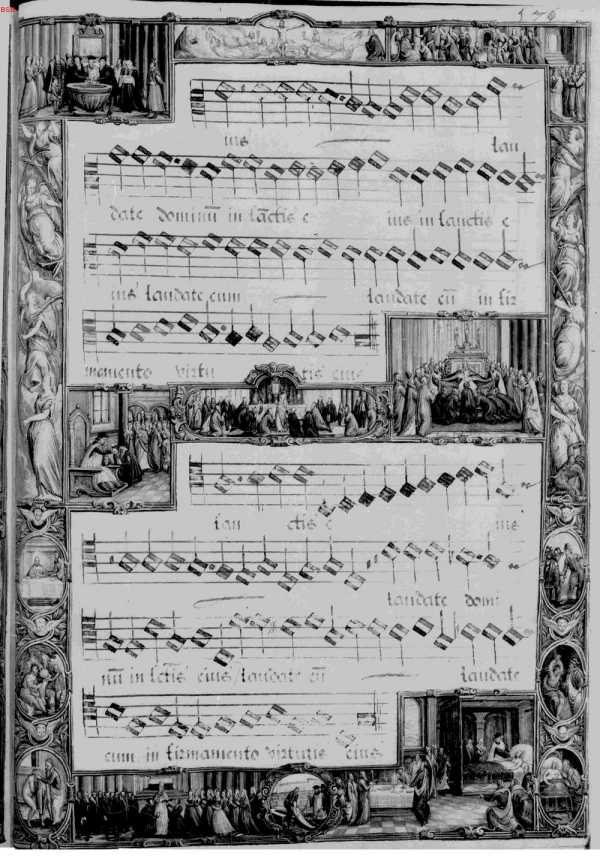 BSB
176
ius lau
date dominū in sāctis e ius in sanctis e
ius laudate eum laudate eū in fir
mamento virtu tis eius
san ctis e ius
laudate domi
nū in sctīs eius laudate eū laudate
eum in firmamento virtutis eius